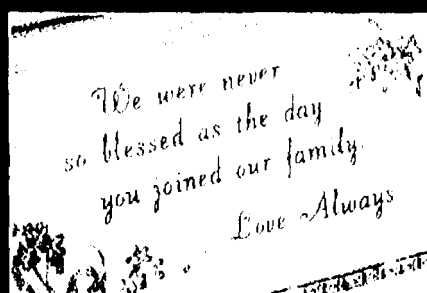 We were never
so blessed as the day
you joined our family.
Love Always